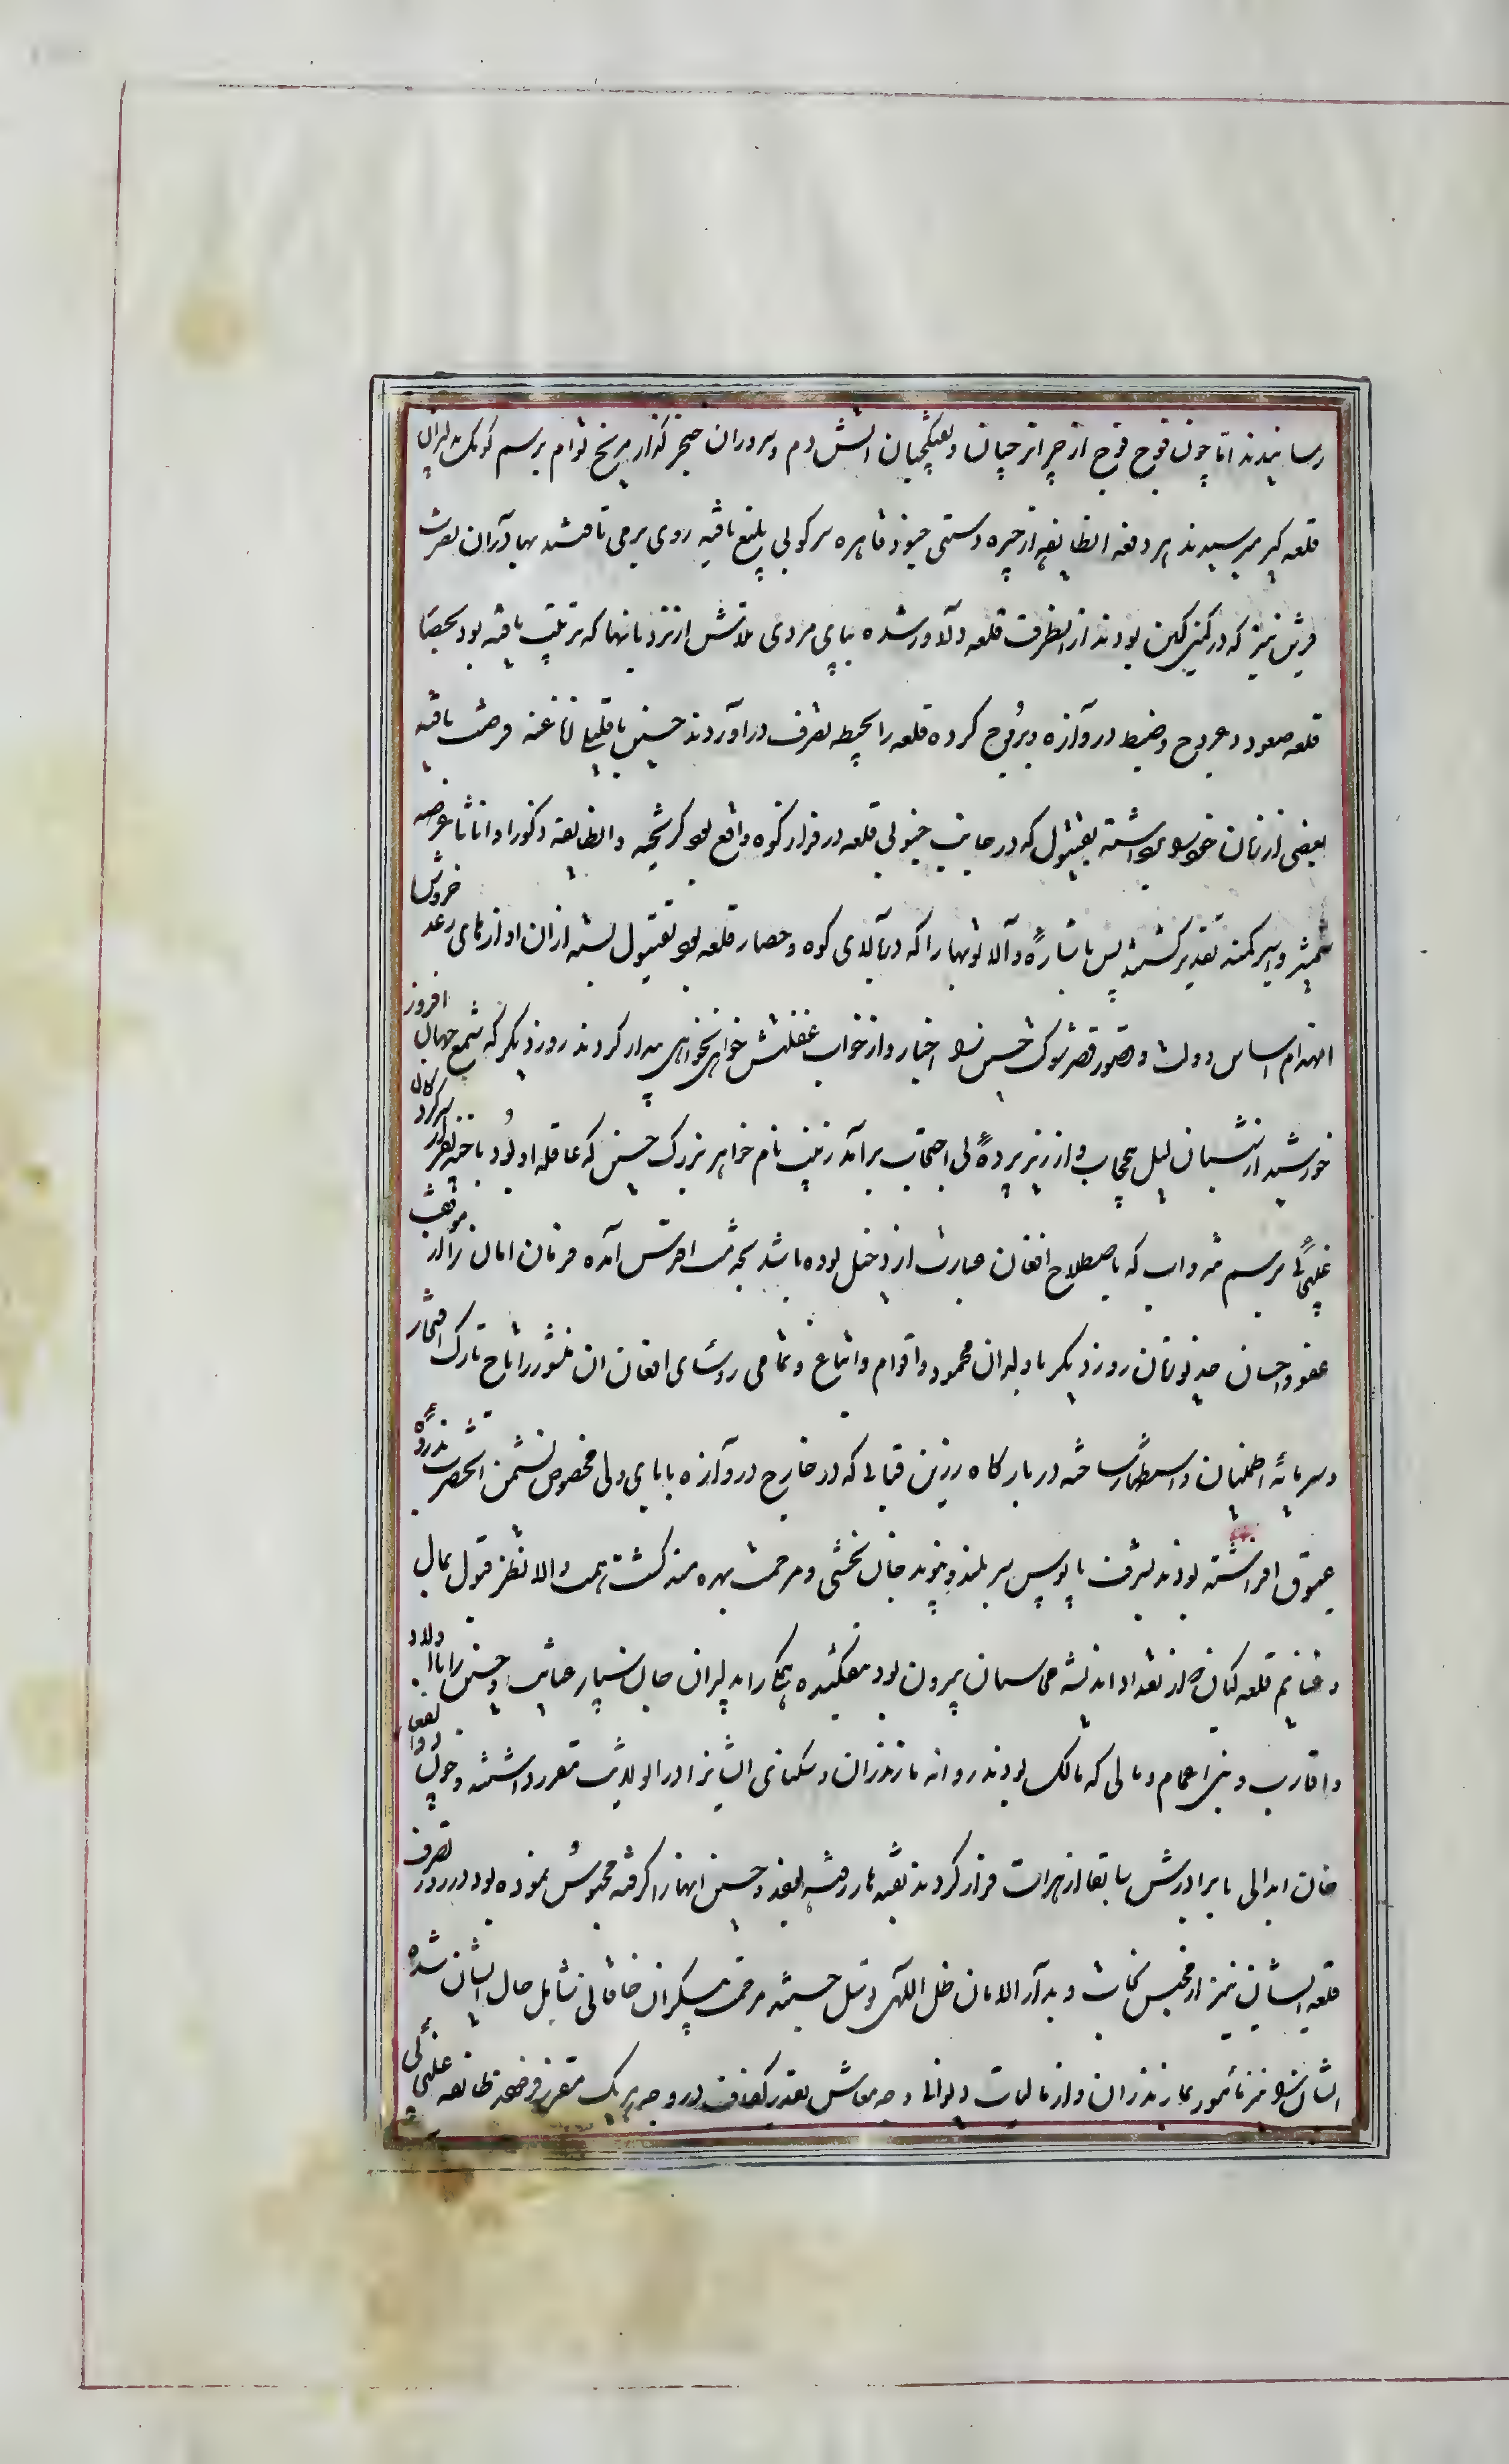 رسانیدند اما چون فوج فوج از جزایرچیان و تفنگچیان آتش دم و سروران خنجر گذار مریخ توام برسم کومک بدلیران
قلعه گیر میرسیدند هر دفعه انطایفه از چیره دستی جنود قاهره سرکوبی بلیغ یافته روی برمی تافتند بهادران نصرت
قرین نیز که در کمین کین بودند از انطرف قلعه دلاور شده بپای مردی تلاش از نردبانها که ترتیب یافته بود بحصار
قلعه صعود و عروج و ضبط دروازه و بروج کرده قلعه را بحیطه تصرف دراوردند حسین با قلیلی افاغنه فرصت یافته
بعضی از زنان خود را برداشته بقیتول که در جانب جنوبی قلعه در فراز کوه واقع بود گریخته و انطایفه ذکورا و اناثا عرضه
شمشیر و اسیر کمند تقدیر گشتند پس باشاره والا توبها را که در بالای کوه و حصار قلعه بود بقیتول بسته از ان اوازهای رعد خروش
انهدام اساس دولت و قصور قصر شوکت حسین را اخبار و از خواب غفلتش خواهی نخواهی بیدار کردند روز دیگر که شمع جهان افروز
خورشید از شبستان لیل حجاب و از زیر پرده بی احتجاب برآمد زینب نام خواهر بزرگ حسین که عاقله او بود با چند نفر از سرکردگان
غلیجائی برسم نه واب که باصطلاح افغان عبارت از دخیل بوده باشد بخدمت اقدس آمده فرمان امان را از موقف
عفو و احسان خدیو زمان روز دیگر با دلیران محمود و اقوام و اتباع و تمامی رؤسای افغان ان منشور را تاج تارک افتخار
و سرمایه اطمینان و استظهار ساخته در بارگاه زرین قبابی که در خارج دروازه بابای ولی مخصوص نشیمن انحضرت بذروه
عیوق افراشته بودند بشرف پابوس سر بلند و بنوید جان بخشی و مرحمت بهره مند گشتند همت والا نظر قبول بمال
و غنایم قلعه کیان که از تعداد اندیشه محاسبان بیرون بود نیفکنده همگی را بدلیران جان سپار عنایت و حسین را با اولاد
و اقارب و بنی اعمام و مالی که مالک بودند روانه مازندران و سکنای ایشانرا در ان ولایت مقرر داشتند و چون ذوالفقار
خان ابدالی با برادرش سابقا از هرات فرار کرده بقندهار رفته بودند و حسین انها را گرفته محبوس نموده بود در روز تصرف
قلعه ایشان نیز از محبس نجات و بدار الامان ظل اللهی توسل جسته مرحمت بیکران خاقانی شامل حال ایشان شده
ایشان را نیز مأمور بمازندران و از مالیات دیوانی وجه معاش بقدر کفاف در وجه هر یک مقرر فرمودند طایفه غلیجائی